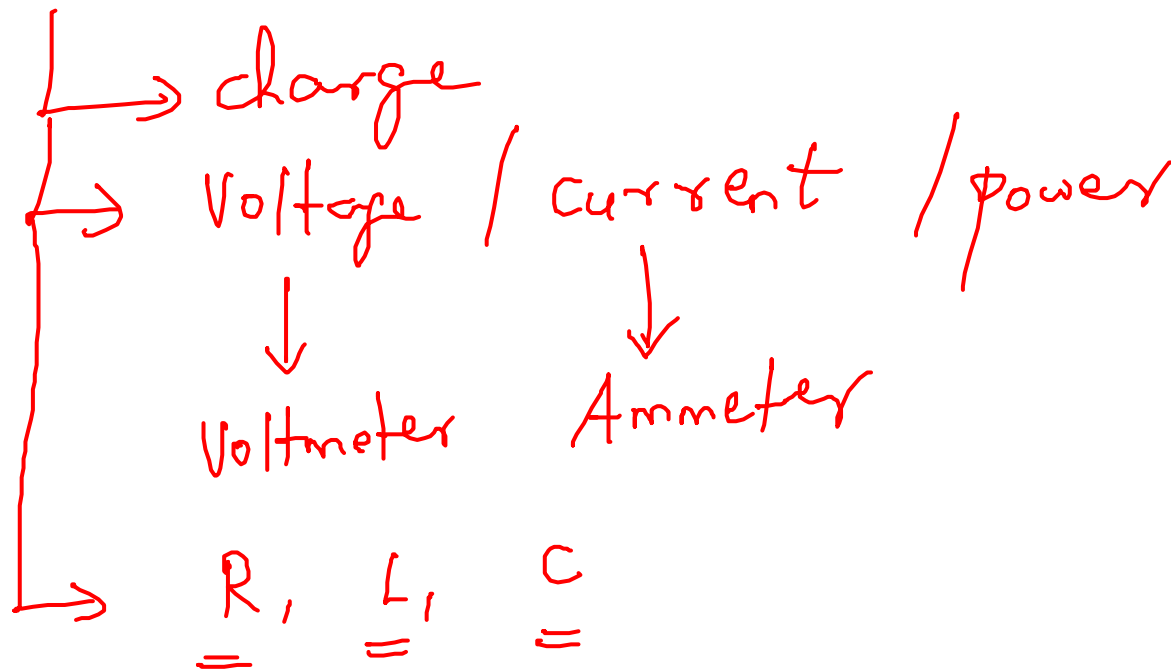 charge
Voltage / current / power
Voltmeter Ammeter
R, L, C